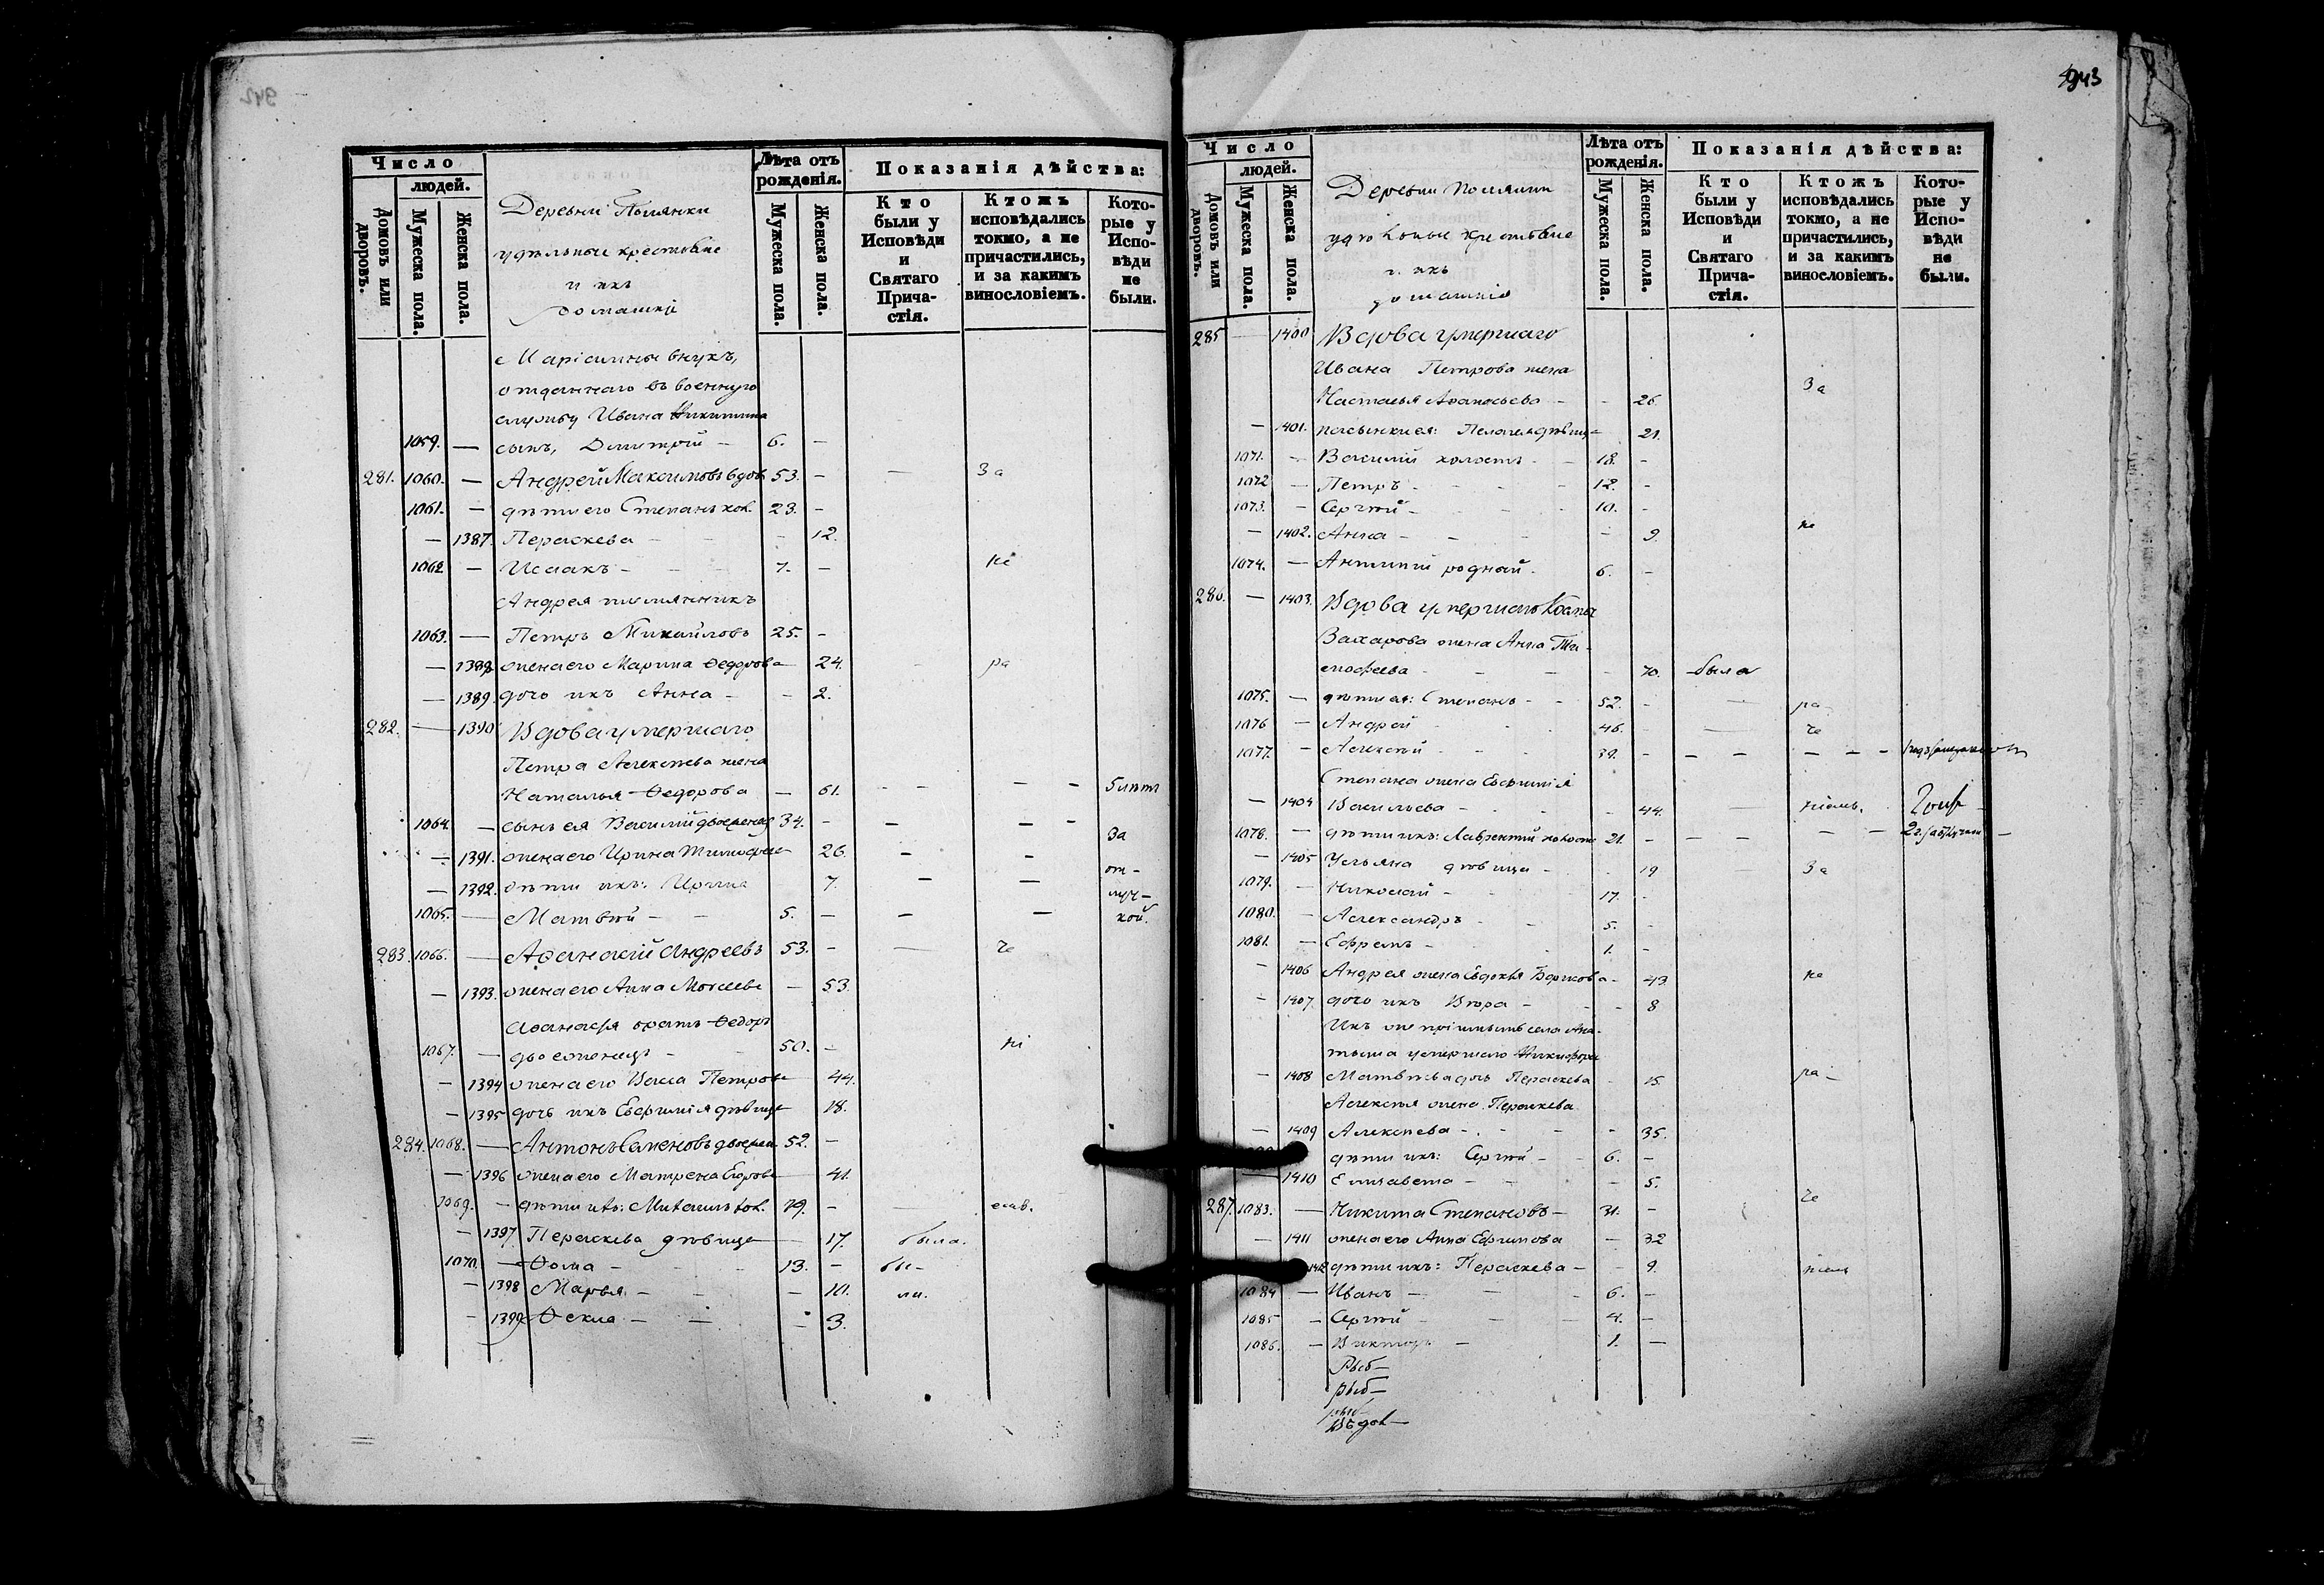 942
Число
людей.
Домовъ или дворовъ.
Мужеска пола.
Женска пола.
Деревни Полянки
удѣльные крестьяне
и ихъ
домашніе
Лѣта отъ рожденія.
Мужеска пола.
Женска пола.
Показанія дѣйства:
Кто были у Исповѣди и Святаго Причастія.
Ктожъ исповѣдались токмо, а не причастились, и за какимъ винословіемъ.
Которые у Исповѣди не были.
внукъ,
отданнаго въ военную
службу Ивана Никитина
1059. — сынъ, Димитрій — 6. —
281. 1060. — Андрей Максимовъ вдов 53. — — За
1061. — дѣти его Степанъ хол. 23. —
— 1387. Параскева — — 12.
1062 — Исаакъ — 7. — не
Андрея племянникъ
1063. — Петръ Михайловъ 25. —
— 1388 жена его Марина Ѳедорова — 24. ра
— 1389. дочь ихъ Анна — — 2.
282. — 1390 Вдова умершаго
Петра Алексѣева жена
Наталья Ѳедорова — 61. — — — —
1064. — сынъ ея Василій двоежен 34. — — — — За
— 1391. жена его Ирина Тимофее — 26. — — от-
— 1392. дѣти ихъ: Ирина 7. — — луч-
1065. — Матвѣй — — 5. — — — кой.
283. 1066. — Аѳанасій Андреевъ 53. — — че
— 1393. жена его Анна Моисеева — 53
Аѳанасья братъ Ѳедоръ
1067. — двоеженецъ — 50. — ні
— 1394 жена его Васса Петрова 44.
— 1395 дочь ихъ Евфимія дѣвица 18.
284. 1068. — Антонъ Семеновъ двоежен. 52. —
— 1396 жена его Матрена Егорова — 41.
1069. — дѣти ихъ: Михаилъ хол. 19. — — емъ.
— 1397 Параскева дѣвица — 17. была.
1070. — Ѳома — 13. — бы-
— 1398 Марья — — — 10. ли.
— 1399 Ѳекла — — — 3.
943
Число
людей.
Домовъ или дворовъ.
Мужеска пола.
Женска пола.
Деревни Полянки
удѣльные крестьяне
и ихъ
домашніе
Лѣта отъ рожденія.
Мужеска пола.
Женска пола.
Показанія дѣйства:
Кто были у Исповѣди и Святаго Причастія.
Ктожъ исповѣдались токмо, а не причастились, и за какимъ винословіемъ.
Которые у Исповѣди не были.
285 — 1400 Вдова умершаго
Ивана Петрова жена За
Настасья Аѳанасьева — — 26.
— 1401. пасынки ея: Пелагея дѣвица 21.
1071. — Василій холостъ — — 18. —
1072 — Петръ — — — 12. —
1073. — Сергѣй — — 10. —
— 1402. Анна — — — 9. не
1074. — родный. 6. —
286. — 1403. Вдова умершаго Космы
Захарова жена Анна Ти-
моѳеева — — — — 70. была
1075. — дѣти ея: Степанъ — — 52. — — ра
1076 — Андрей 46. — — че
1077. — Алексѣй 39. — — — — —
Степана жена Евфимія
— 1404 Васильева — — 44. — ніемъ.
1078. — дѣти ихъ: Лаврентій холостъ 21. — — — — —
— 1405 Ульяна дѣвица — — 19 — За
1079. — Николай — 17. —
1080. — Александръ — 5. —
1081. — Ефремъ — 1. —
— 1406 Андрея жена Евдокія Борисова — 43. не
— 1407. дочь ихъ — — 8
умершаго Никифора
— 1408 Матвѣева дочь Параскева — 15. ра-
Алексѣя жена Параскева
— 1409 Алексѣева — — — 35.
дѣти ихъ: Сергѣй — 6. —
— 1410 Елизавета — — — 5.
287. 1083. — Никита Степановъ — 31. — че
— 1411 жена его Анна Ефимова — 32
1412 дѣти ихъ: Параскева — — 9. ніемъ
1084 — Иванъ — — — 6. —
1085 — Сергѣй — — — 4. —
1086. — Викторъ — 1. —